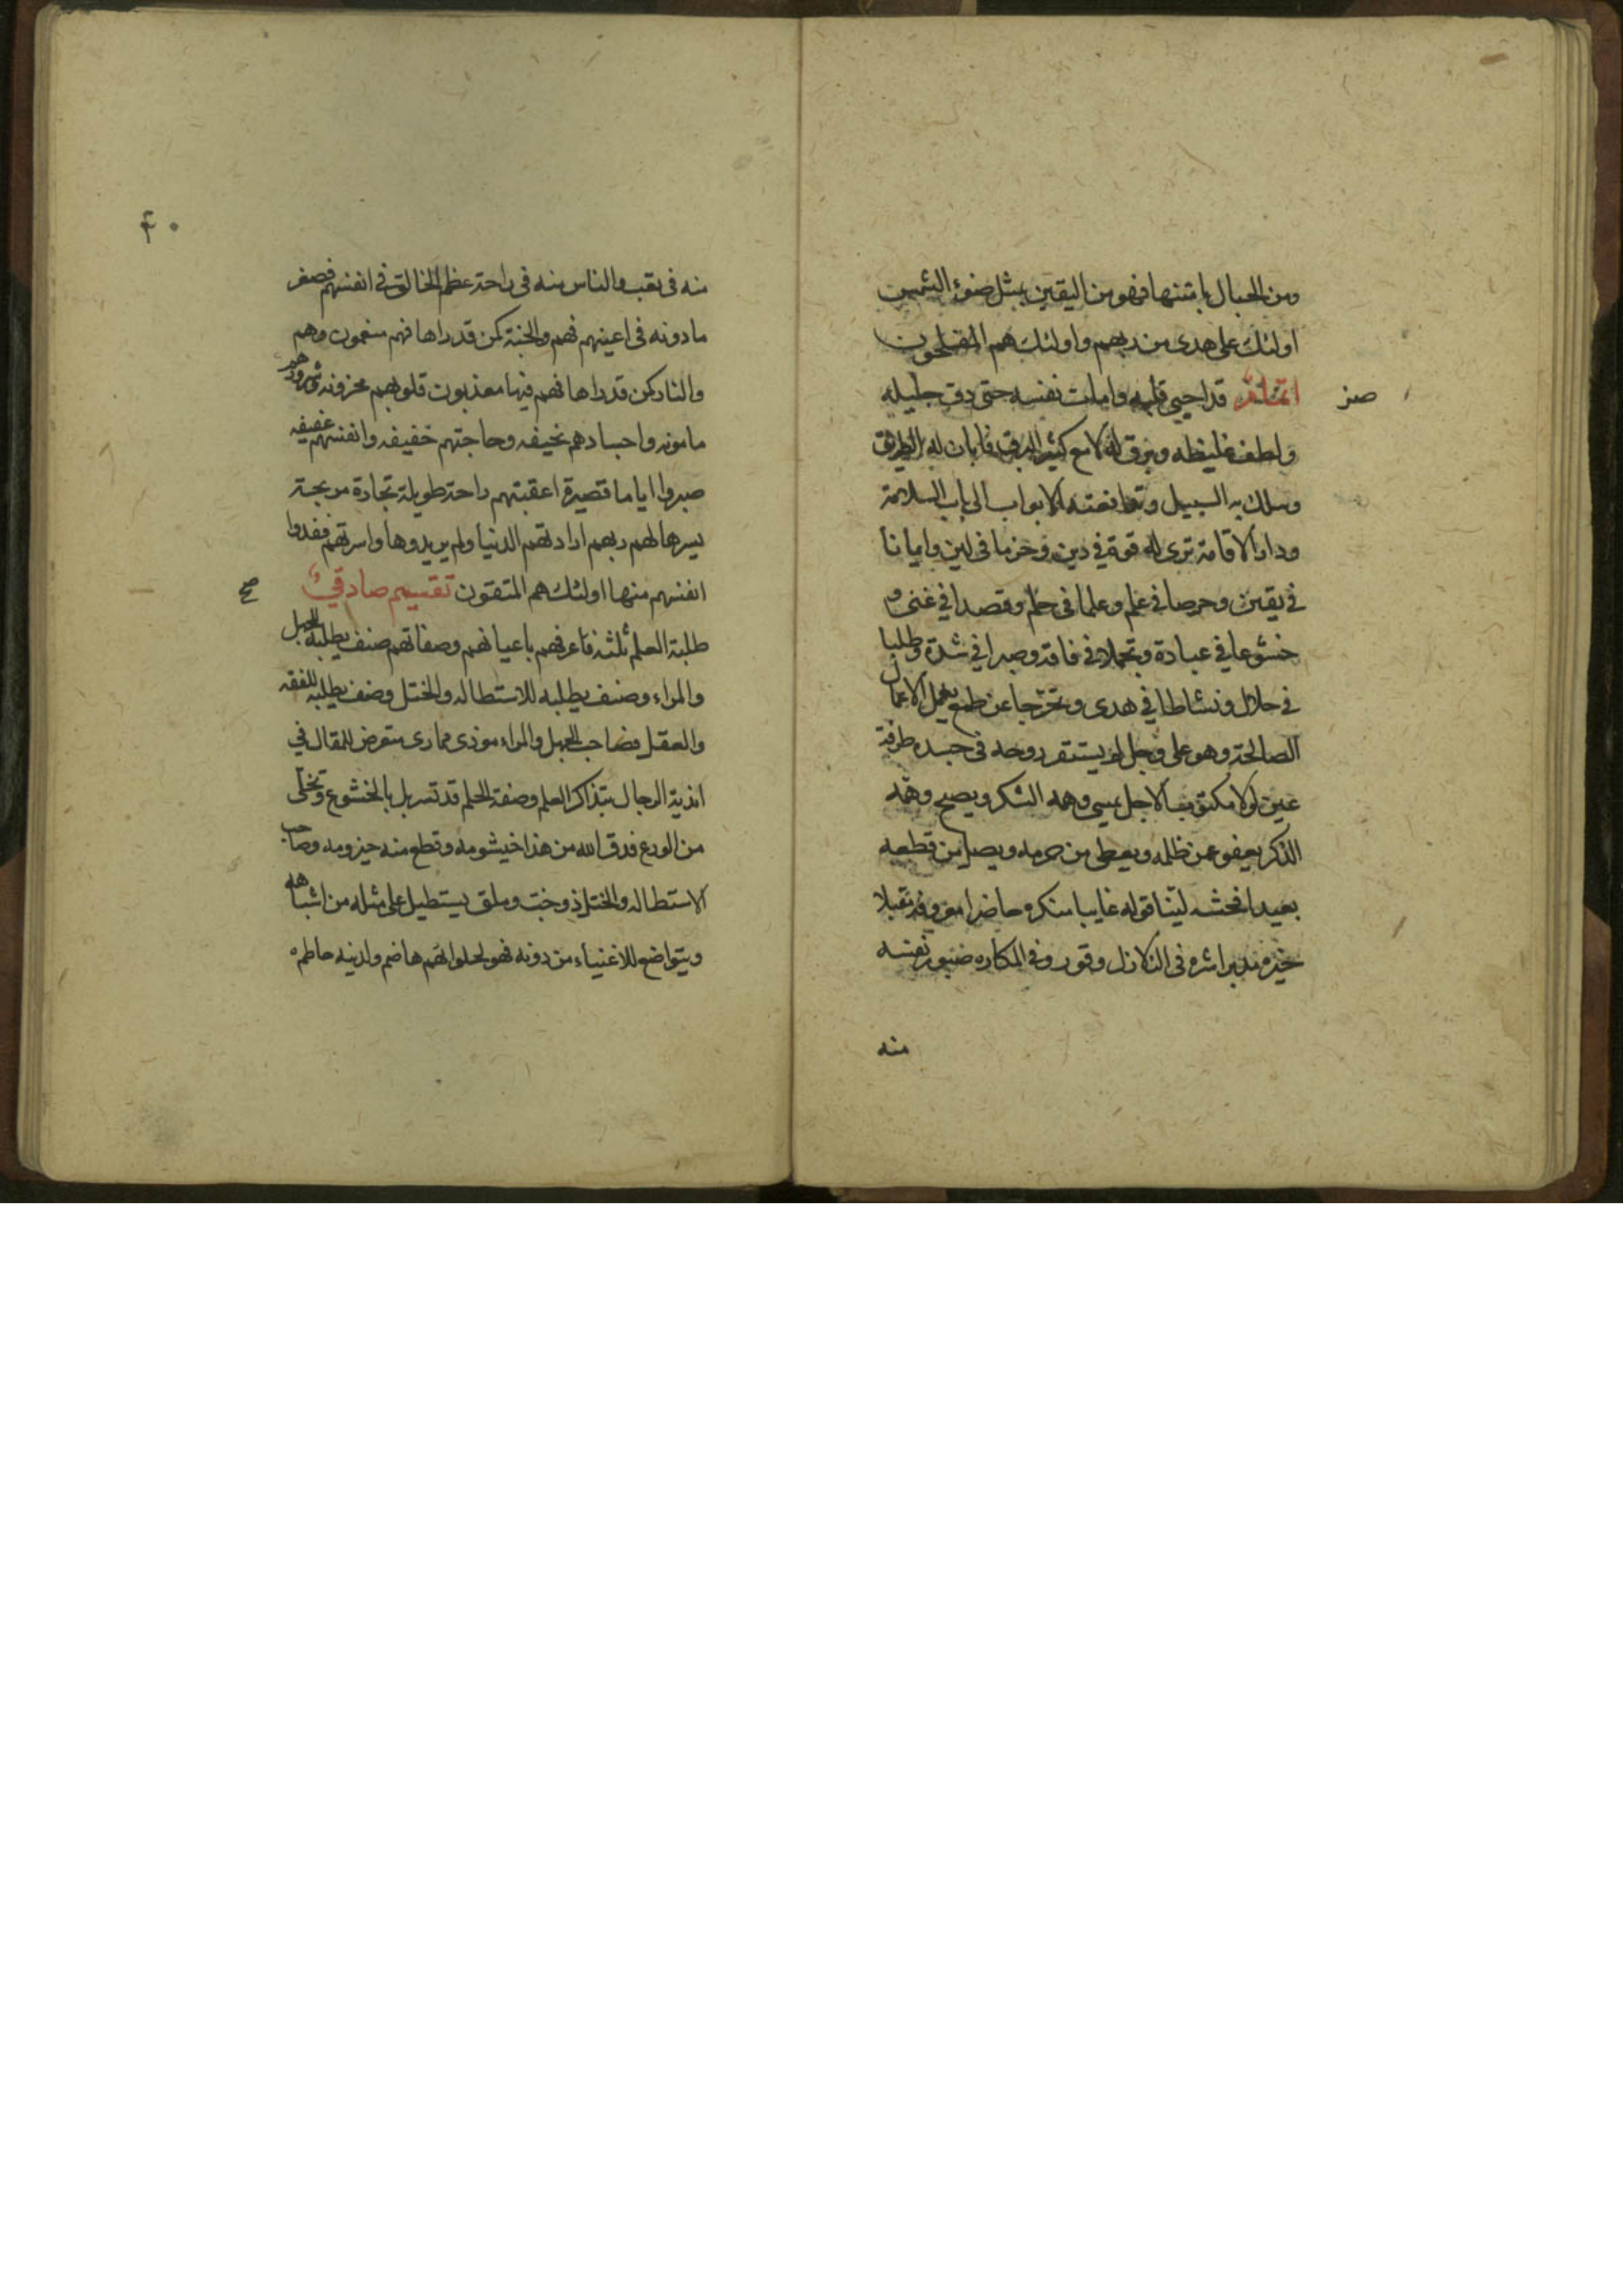 ومن الحبال بامتنها فهو من اليقين بمثل ضوء الشمس
اولئك على هدى من ربهم واولئك هم المفلحون
قد احيى قلبه وامات نفسه حتى دق جليله
ولطف غليظه وبرق له لامع كثير البرق فابان له الطريق
وسلك به السبيل وتدافعته الابواب الى باب السلامة
ودار الاقامة ترى له قوة في دين وحزما في لين وايمانا
في يقين وحرصا في علم وعلما في حلم وقصدا في غنى و
خشوعا في عبادة وتجملا في فاقة وصبرا في شدة وطلبا
في حلال ونشاطا في هدى وتحرجا عن طمع يعمل الاعمال
الصالحة وهو على وجل لم يستقر روحه في جسده طرفة
عين لولا مكتوب الاجل يمسي وهمه الشكر ويصبح وهمه
الذكر يعفو عمن ظلمه ويعطي من حرمه ويصل من قطعه
بعيدا فحشه لينا قوله غايبا منكره حاضرا معروفه مقبلا
خيره مدبرا شره في الزلازل وقور وفي المكاره صبور نفسه
منه
۴۰
منه في تعب والناس منه في راحة عظم الخالق في انفسهم فصغر
ما دونه في اعينهم فهم والجنة كمن قد راها فهم منعمون وهم
والنار كمن قد راها فهم فيها معذبون قلوبهم محزونه وشرورهم
مامونه واجسادهم نحيفه وحاجتهم خفيفه وانفسهم عفيفه
صبروا اياما قصيرة اعقبتهم راحة طويلة تجارة مربحة
يسرها لهم ربهم ارادتهم الدنيا ولم يريدوها واسرتهم ففدوا
انفسهم منها اولئك هم المتقون تقسيم صادقي
طلبة العلم ثلثه فاعرفهم باعيانهم وصفاتهم صنف يطلبه للجهل
والمراء وصنف يطلبه للاستطاله والختل وصنف يطلبه للفقه
والعقل فصاحب الجهل والمراء موذى ممارى متعرض للمقال في
اندية الرجال بتذاكر العلم وصفة الحلم قد تسربل بالخشوع وتخلى
من الورع فدق الله من هذا خيشومه وقطع منه حيزومه وصاحب
الاستطاله والختل ذو خب وملق يستطيل على مثله من اشباهه
ويتواضع للاغنياء من دونه فهو لحلوائهم هاضم ولدينه حاطم